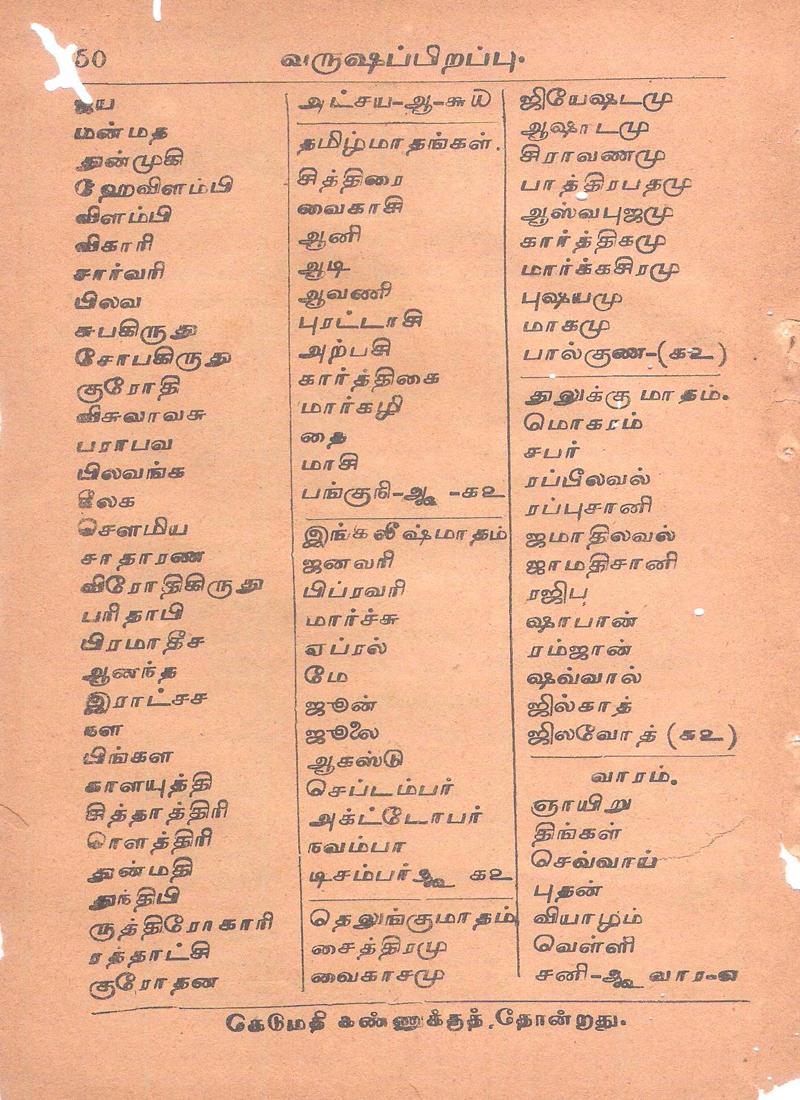 60
வருஷப்பிறப்பு.
ஜய
மன்மத
துன்முகி
ஹேவிளம்பி
விளம்பி
விகாரி
சார்வரி
பிலவ
சுபகிருது
சோபகிருது
குரோதி
விசுவாவசு
பராபவ
பிலவங்க
கீலக
சௌமிய
சாதாரண
விரோதிகிருது
பரிதாபி
பிரமாதீச
ஆனந்த
இராட்சச
நள
பிங்கள
காளயுத்தி
சித்தாத்திரி
ரௌத்திரி
துன்மதி
துந்திபி
ருத்திரோகாரி
ரத்தாட்சி
குரோதன
அட்சய-ஆ-௬௰
தமிழ்மாதங்கள்.
சித்திரை
வைகாசி
ஆனி
ஆடி
ஆவணி
புரட்டாசி
அற்பசி
கார்த்திகை
மார்கழி
தை
மாசி
பங்குநி-ஆ-௧௨
இங்கலீஷ்மாதம்
ஜனவரி
பிப்ரவரி
மார்ச்சு
ஏப்ரல்
மே
ஜூன்
ஜூலை
ஆகஸ்டு
செப்டம்பர்
அக்ட்டோபர்
நவம்பா
டிசம்பர்ஆ ௧௨
தெலுங்குமாதம்
சைத்திரமு
வைகாசமு
ஜியேஷடமு
ஆஷாடமு
சிராவணமு
பாத்திரபதமு
ஆஸ்வபுஜமு
கார்த்திகமு
மார்க்கசிரமு
புஷயமு
மாகமு
பால்குண-(௧௨)
துலுக்கு மாதம்.
மொகரம்
சபர்
ரப்பிலவல்
ரப்புசானி
ஜமாதிலவல்
ஜாமதிசானி
ரஜிபு
ஷாபான்
ரம்ஜான்
ஷவ்வால்
ஜில்காத்
ஜிலவோத் (௧௨)
வாரம்.
ஞாயிறு
திங்கள்
செவ்வாய்
புதன்
வியாழம்
வெள்ளி
சனி-ஆ வார-௭
கெடுமதி கண்ணுக்குத் தோன்றது.